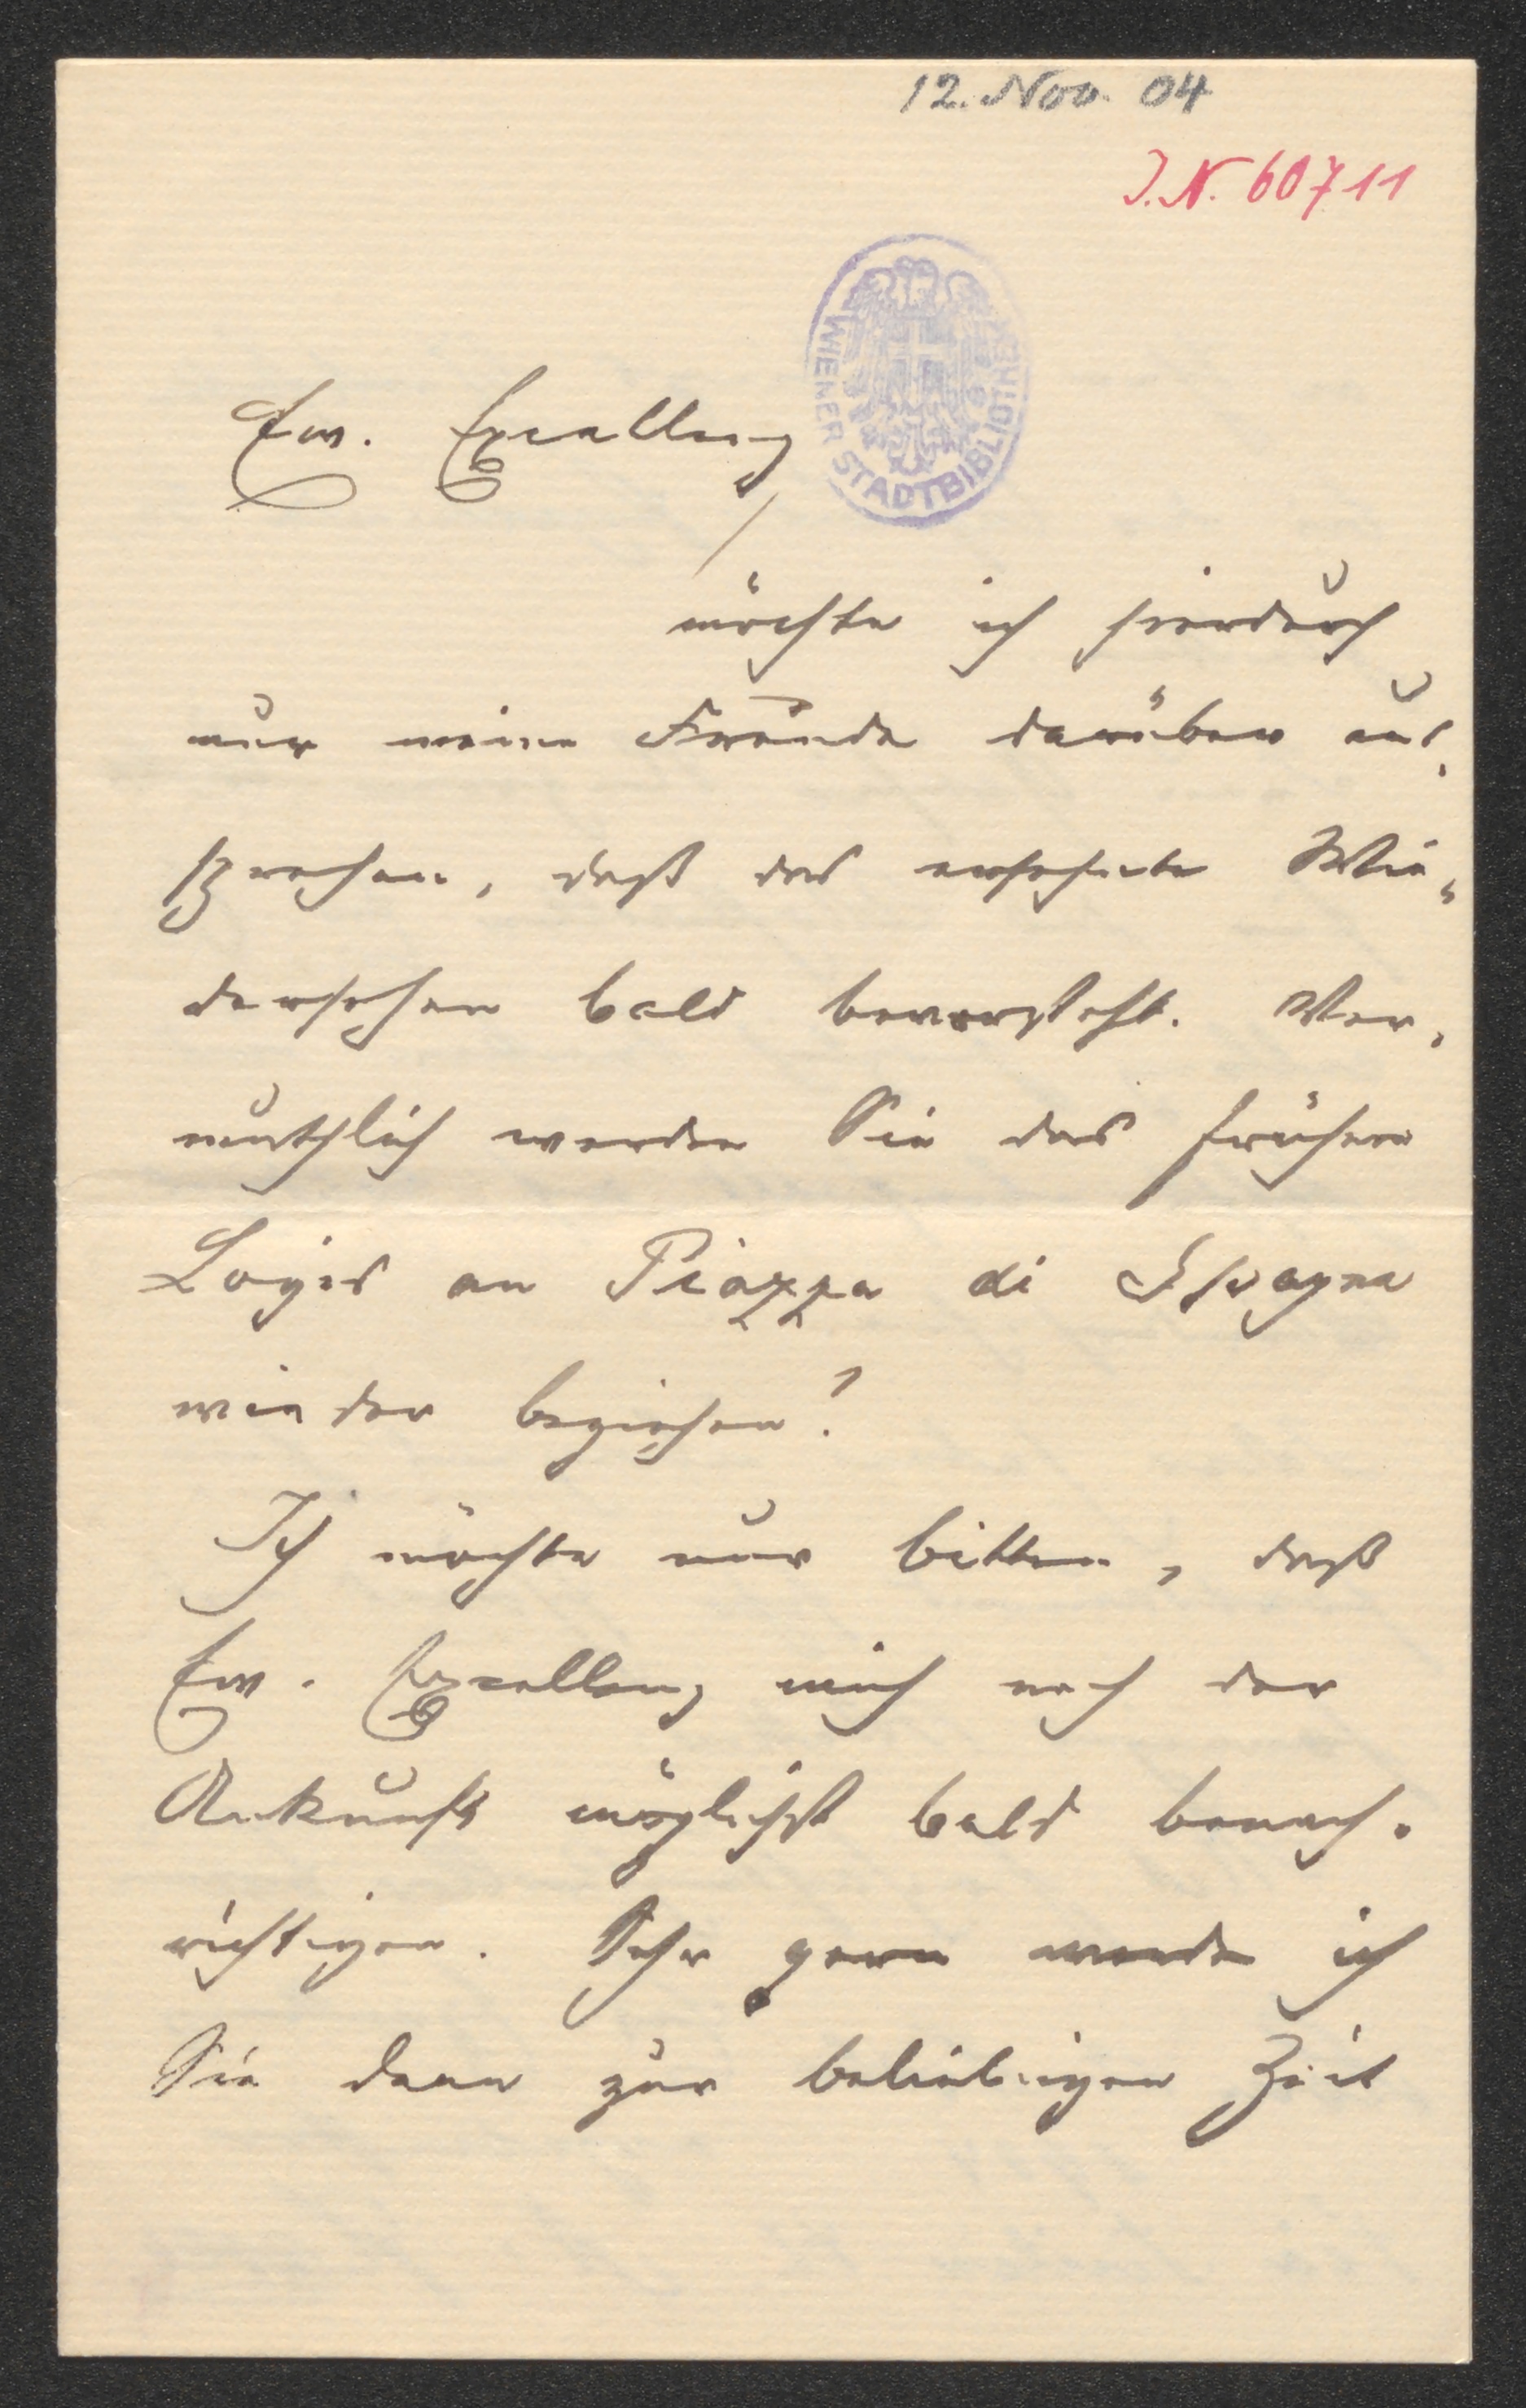 12. Nov. 04
I.N. 60711
WIENER STADTBIBLIOTHEK
Ew. Excellenz
möchte ich hierdurch
nur meine Freude darüber aus-
sprechen, daß das ersehnte Wie-
dersehen bald bevorsteht. Ver-
muthlich werden Sie das frühere
Logis an Piazza di Spagna
wieder beziehen?
Ich möchte nur bitten, daß
Ew. Excellenz mich nach der
Ankunft möglichst bald benach-
richtigen. Sehr gern werde ich
Sie dann zur beliebigen Zeit